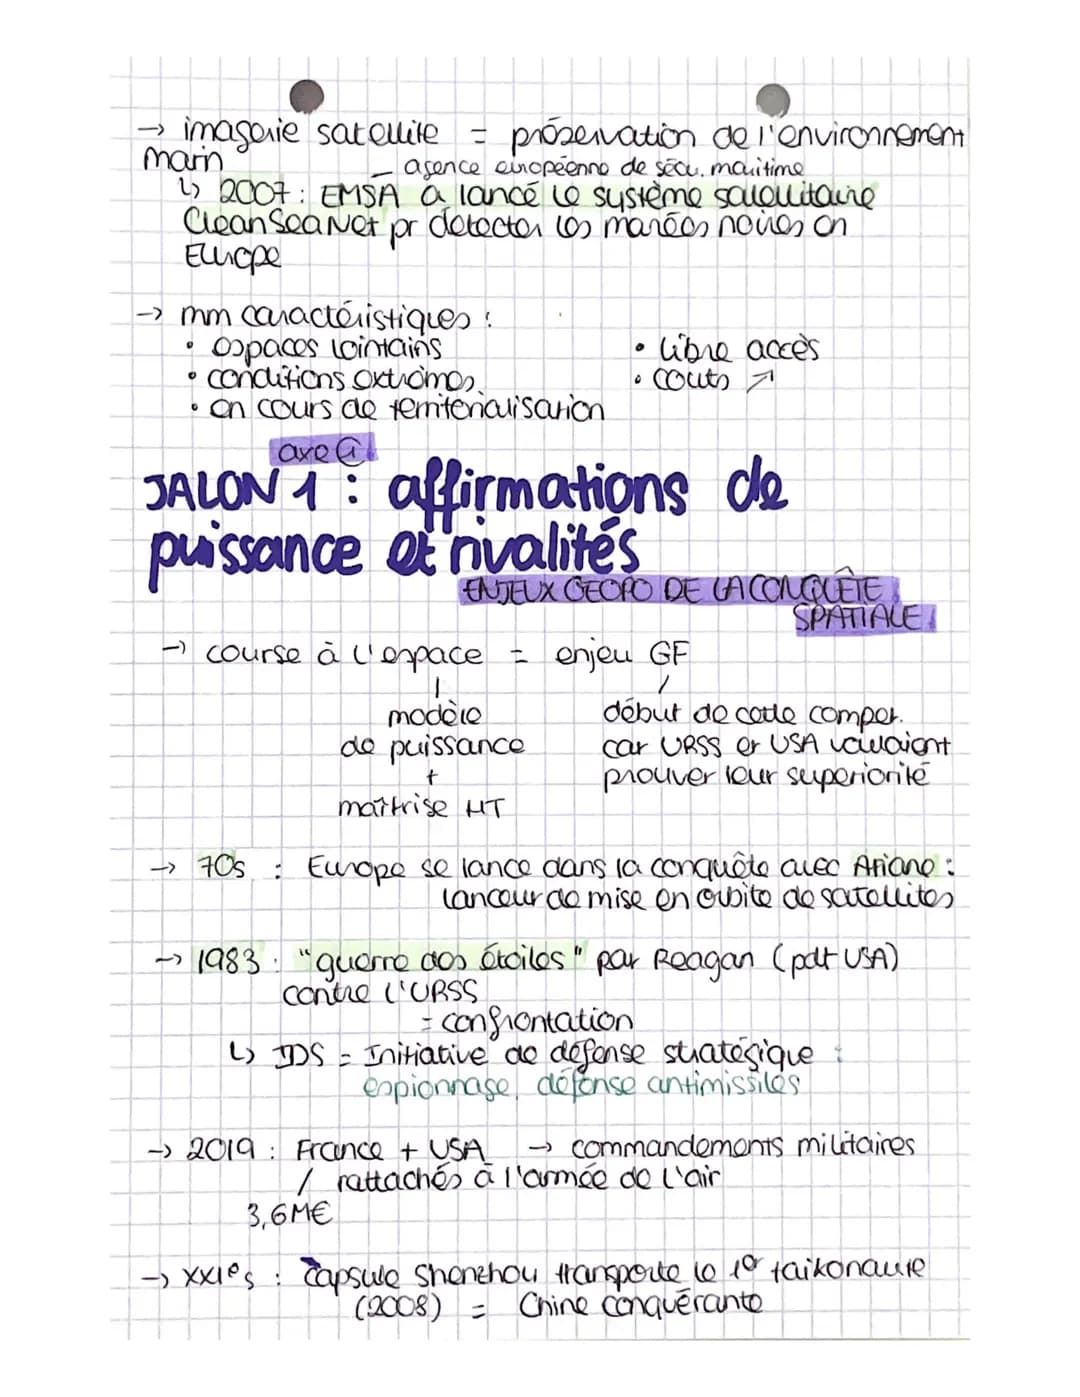 → imagerie satellite = préservation de l'environnement
marin
– agence européenne de sécu. maritime
↳ 2007 : EMSA a lancé le système satellitaire
CleanSeaNet pr détecter les marées noires en
Europe
→ mm caractéristiques :
• espaces lointains
• libre accès
• conditions extrêmes
• couts ↗
• en cours de territorialisation
axe ①
JALON 1 : affirmations de
puissance et rivalités
ENJEUX GEOPO DE LA CONQUÊTE
SPATIALE
→ course à l'espace = enjeu GF
modèle
début de cette compet.
de puissance
car URSS et USA voulaient
+
prouver leur superiorité
maîtrise HT
→ 70s : Europe se lance dans la conquête avec Ariane :
lanceur de mise en orbite de satellites
→ 1983 : "guerre des étoiles" par Reagan (pdt USA)
contre l'URSS
= confrontation
↳ IDS = Initiative de défense stratégique :
espionnage, défense antimissiles
→ 2019 : France + USA → commandements militaires
/ rattachés à l'armée de l'air
3,6M€
→ XXIe s : Capsule Shenzhou transporte le 1er taïkonaute
(2008) = Chine conquérante